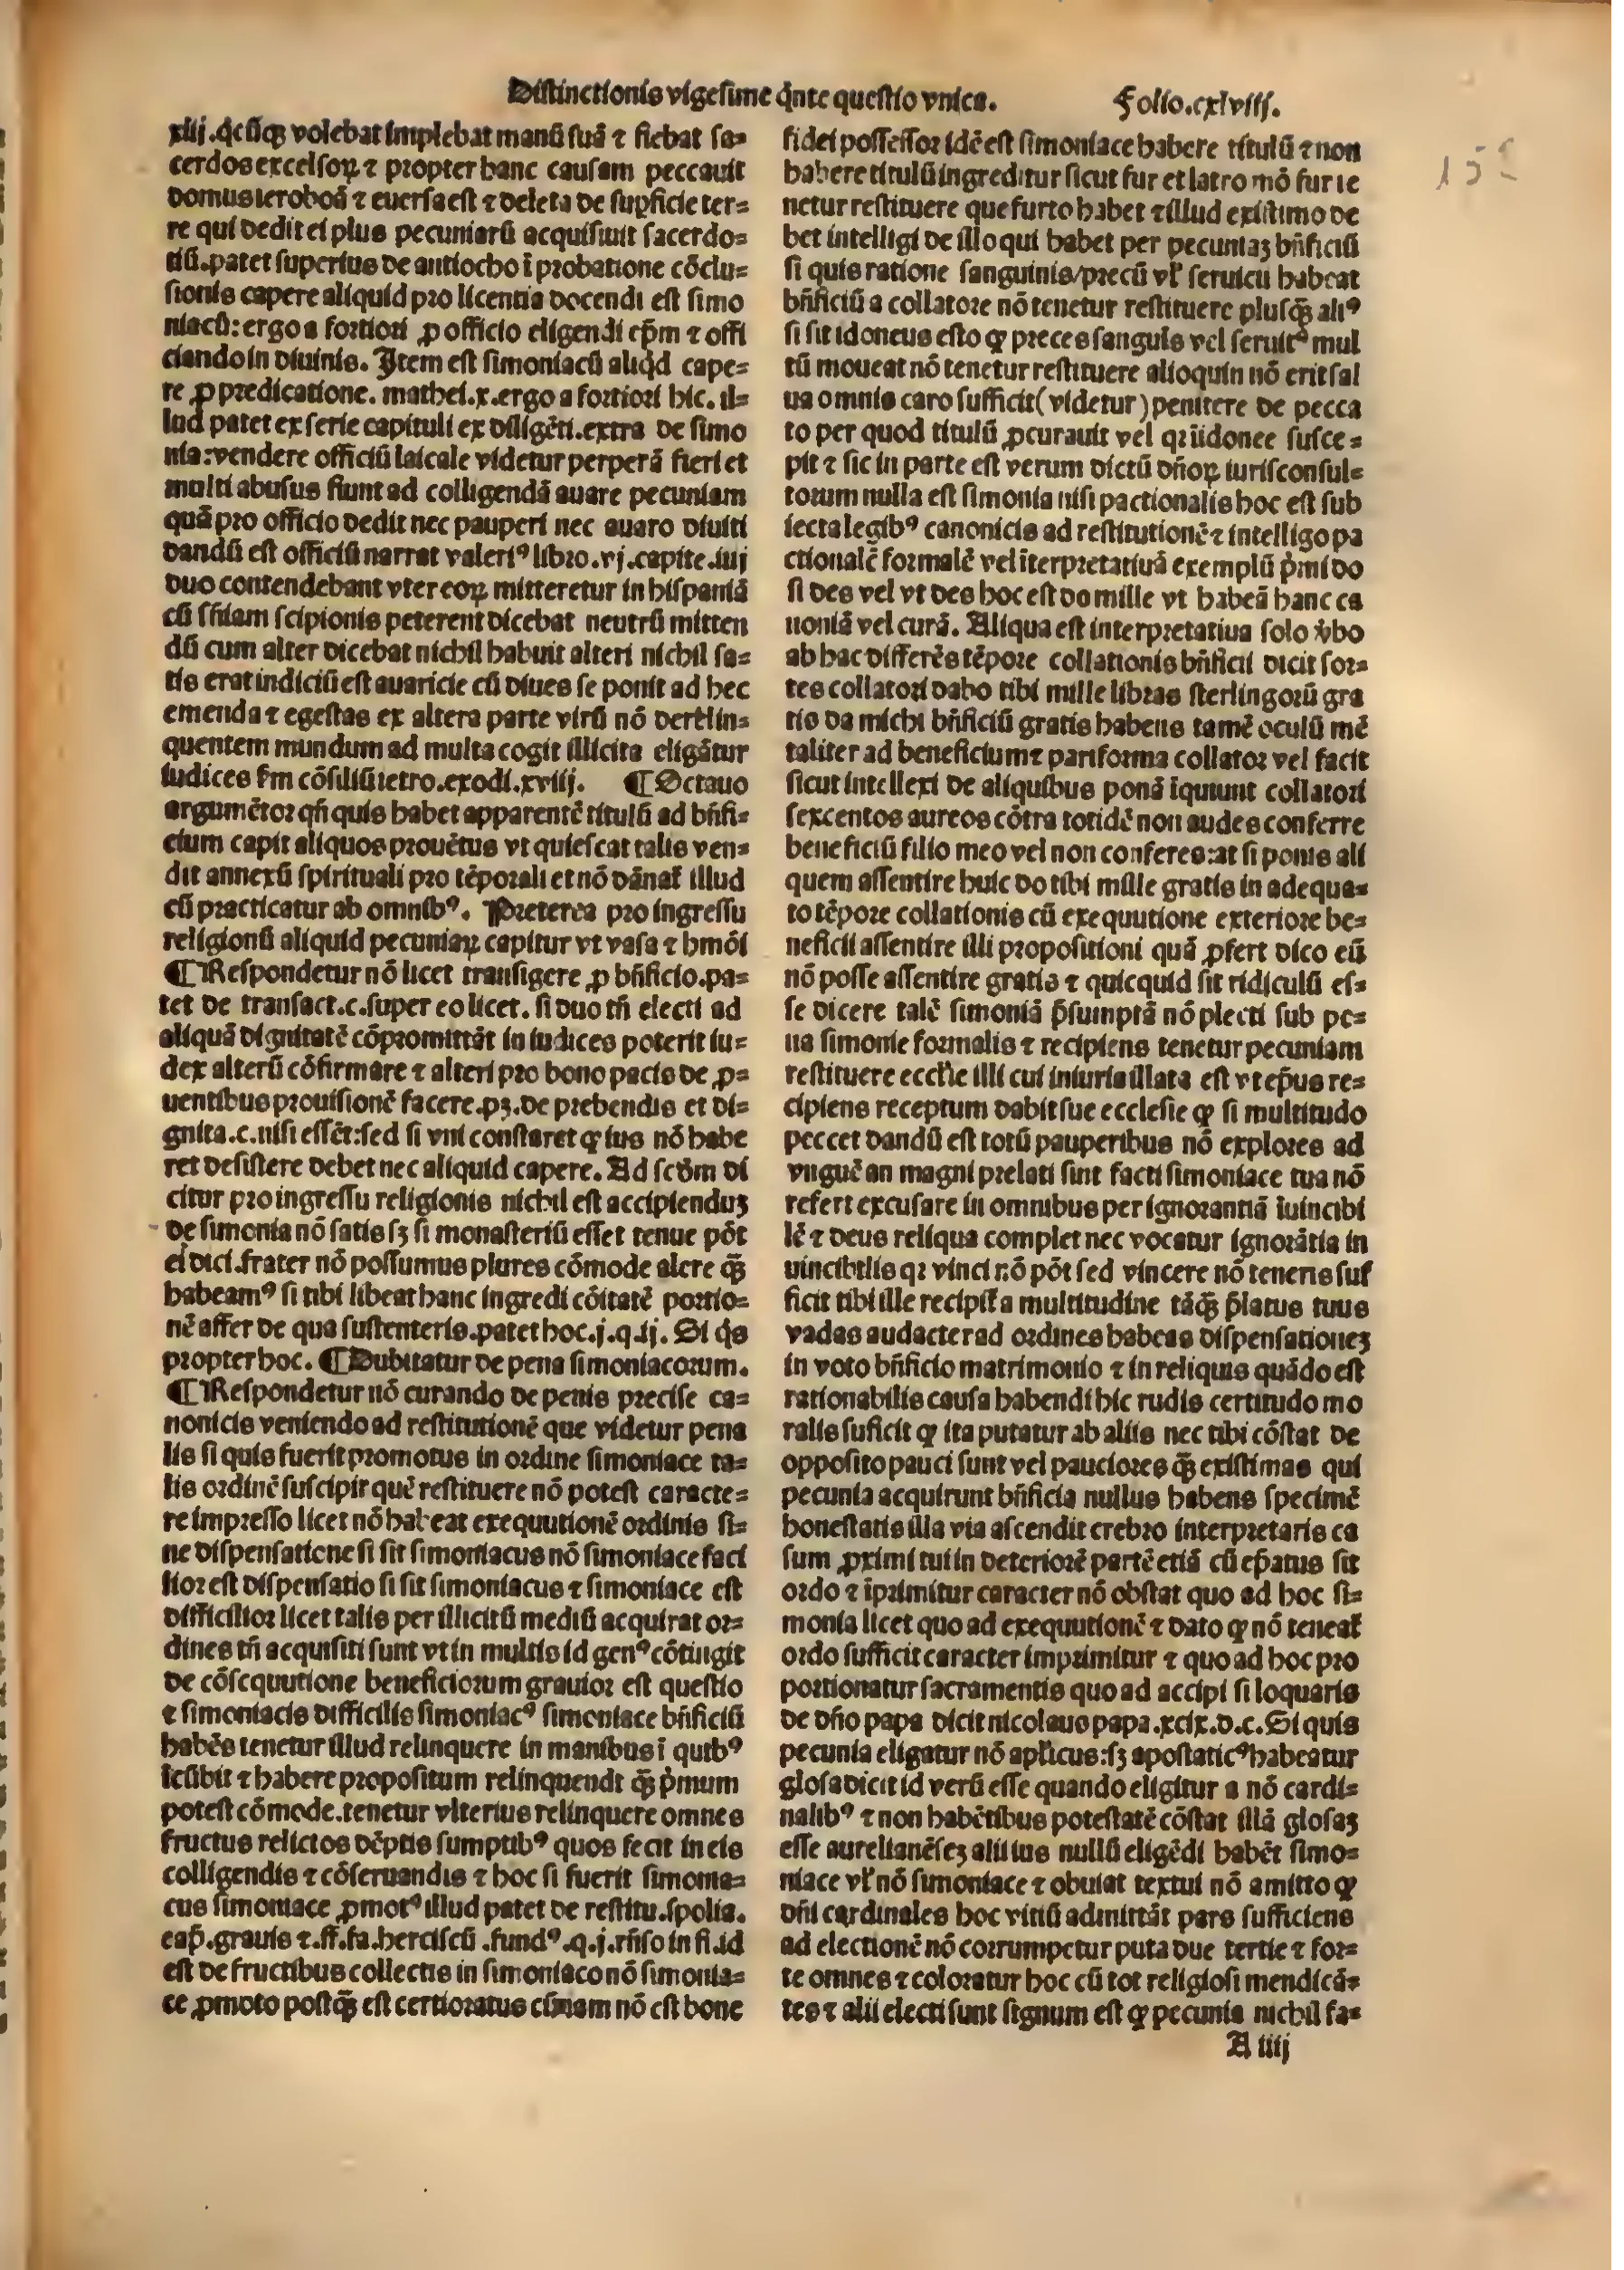 Distinctionis vigesime q̃nte questio vnica. Folio.cxlviij.
xiij.q̃cũqꝫ volebat implebat manũ suã ⁊ fiebat sa-
cerdos excelsoꝝ ⁊ propter hanc causam peccauit
domus ieroboã ⁊ euersa est ⁊ deleta de suꝑficie ter-
re qui dedit ei plus pecuniarũ acquisiuit sacerdo-
tiũ.patet superius de antiocho ĩ probatione cõclu-
sionis capere aliquid pro licentia docendi est simo
niacũ: ergo a fortiori ꝓ officio eligendi ep̃m ⁊ offi
ciando in diuinis. Item est simoniacũ aliq̃d cape-
re ꝓ predicatione. mathei.x.ergo a fortiori hic. il-
lud patet ex serie capituli ex diligẽti.extra de simo
nia: vendere officiũ laicale videtur perperã fieri et
multi abusus fiunt ad colligendã auare pecuniam
quã pro officio dedit nec pauperi nec auaro diuiti
dandũ est officiũ narrat valeriꝰ libro.vj.capite.iiij
duo contendebant vter eoꝝ mitteretur in hispaniã
cũ sñiam scipionis peterent dicebat neutrũ mitten
dũ cum alter dicebat nichil habuit alteri nichil sa-
tis erat indiciũ est auaricie cũ diues se ponit ad hec
emenda ⁊ egestas ex altera parte virũ nõ derelin-
quentem mundum ad multa cogit illicita eligãtur
iudices s̃m cõsiliũ ietro.exodi.xviij. ¶ Octauo
argumẽtor qñ quis habet apparentẽ titulũ ad bñfi-
cium capit aliquos prouẽtus vt quiescat talis ven-
dit annexũ spirituali pro tẽporali et nõ dãnat̃ illud
cũ practicatur ab omnibꝰ. Preterea pro ingressu
religionũ aliquid pecuniaꝝ capitur vt vasa ⁊ hmõi
¶ Respondetur nõ licet transigere ꝓ bñficio.pa-
tet de transact.c.super eo licet. si duo tñ electi ad
aliquã dignitatẽ cõpromittãt in iudices poterit iu-
dex alterũ cõfirmare ⁊ alteri pro bono pacis de ꝓ-
uentibus prouisionẽ facere.pꝫ.de prebendis et di-
gnita.c.nisi essẽt: sed si vni constaret ꝙ ius nõ habe
ret desistere debet nec aliquid capere. Ad scd̃m di
citur pro ingressu religionis nichil est accipienduꝫ
de simonia nõ satis sꝫ si monasteriũ esset tenue põt
ei dici.frater nõ possumus plures cõmode alere q̃ꝫ
habeamꝰ si tibi libeat hanc ingredi cõitatẽ portio-
nẽ affer de qua sustenteris.patet hoc.j.q.ij. Si q̃s
propter hoc. ¶ Dubitatur de pena simoniacorum.
¶ Respondetur nõ curando de penis precise ca-
nonicis veniendo ad restitutionẽ que videtur pena
lis si quis fuerit promotus in ordine simoniace ta-
lis ordinẽ suscipit quẽ restituere nõ potest caracte-
re impresso licet nõ habeat exequutionẽ ordinis si-
ne dispensatione si sit simoniacus nõ simoniace faci
lior est dispensatio si sit simoniacus ⁊ simoniace est
difficilior licet talis per illicitũ mediũ acquirat or-
dines tñ acquisiti sunt vt in multis id genꝰ cõtingit
de cõsequutione beneficiorum grauior est questio
⁊ simoniacis difficilis simoniacꝰ simoniace bñficiũ
habẽs tenetur illud relinquere in manibus ĩ quibꝰ
ĩcũbit ⁊ habere propositum relinquendi q̃ꝫ p̃mum
potest cõmode.tenetur vlterius relinquere omnes
fructus relictos dẽptis sumptibꝰ quos fecit in eis
colligendis ⁊ cõseruandis ⁊ hoc si fuerit simonia-
cus simoniace ꝓmotꝰ illud patet de restitu.spolia.
cap̃.grauis ⁊.ff.fa.herciscũ.fundꝰ.q.j.rñso in fi.id
est de fructibus collectis in simoniaco nõ simonia-
ce ꝓmoto postq̃ꝫ est certioratus etiam nõ est bone
fidei possessor idẽ est simoniace habere titulũ ⁊ non
habere titulũ ingreditur sicut fur et latro mõ fur te
netur restituere que furto habet ⁊ illud existimo de
bet intelligi de illo qui habet per pecuniaꝫ bñficiũ
si quis ratione sanguinis/precũ vl̃ seruicii habeat
bñficiũ a collatore nõ tenetur restituere plusq̃ꝫ aliꝰ
si sit idoneus esto ꝙ preces sanguis vel seruitꝰ mul
tũ moueat nõ tenetur restituere alioquin nõ erit sal
ua omnis caro sufficit(videtur)penitere de pecca
to per quod titulũ ꝓcurauit vel qꝛ ĩidonee susce-
pit ⁊ sic in parte est verum dictũ dñoꝝ iurisconsul-
torum nulla est simonia nisi pactionalis hoc est sub
iecta legibꝰ canonicis ad restitutionẽ ⁊ intelligo pa
ctionalẽ formalẽ vel ĩterpretatiuã exemplũ p̃mi do
si des vel vt des hoc est do mille vt habeã hanc ca
noniã vel curã. Aliqua est interpretatiua solo v̾bo
ab hac differẽs tẽpore collationis bñficii dicit sor-
tes collatori dabo tibi mille libras sterlingorũ gra
tis da michi bñficiũ gratis habens tamẽ oculũ mẽ
taliter ad beneficium ⁊ pariforma collator vel facit
sicut intellexi de aliquibus ponã ĩquiunt collatori
sexcentos aureos cõtra totidẽ non audes conferre
beneficiũ filio meo vel non conferes: at si ponis ali
quem assentire huic do tibi mille gratis in adequa-
to tẽpore collationis cũ exequutione exteriore be-
neficii assentire illi propositioni quã ꝓfert dico eũ
nõ posse assentire gratis ⁊ quicquid sit ridiculũ es-
se dicere talẽ simoniã p̃sumptã nõ plecti sub pe-
na simonie formalis ⁊ recipiens tenetur pecuniam
restituere eccl̃ie illi cui iniuria illata est vt ep̃us re-
cipiens receptum dabit sue ecclesie ꝙ si multitudo
peccet dandũ est totũ pauperibus nõ explores ad
vnguẽ an magni prelati sint facti simoniace tua nõ
refert excusare in omnibus per ignorantiã ĩuincibi
lẽ ⁊ deus reliqua complet nec vocatur ignorãtia in
uincibilis qꝛ vinci nõ põt sed vincere nõ teneris suf
ficit tibi ille recipit̃ a multitudine tãq̃ꝫ p̃latus tuus
vadas audacter ad ordines habeas dispensationeꝫ
in voto bñficio matrimonio ⁊ in reliquis quãdo est
rationabilis causa habendi hic rudis certitudo mo
ralis suficit ꝙ ita putatur ab aliis nec tibi cõstat de
opposito pauci sunt vel pauciores q̃ꝫ existimas qui
pecunia acquirunt bñficia nullus habens specimẽ
honestatis illa via ascendit crebro interpretaris ca
sum ꝓximi tui in deteriorẽ partẽ etiã cũ ep̃atus sit
ordo ⁊ ĩprimitur caracter nõ obstat quo ad hoc si-
monia licet quo ad exequutionẽ ⁊ dato ꝙ nõ teneat̃
ordo sufficit caracter imprimitur ⁊ quo ad hoc pro
portionatur sacramentis quo ad accipi si loquaris
de dño papa dicit nicolaus papa.xcix.d.c.Si quis
pecunia eligatur nõ ap̃licus: sꝫ apostaticꝰ habeatur
glosa dicit id verũ esse quando eligitur a nõ cardi-
nalibꝰ ⁊ non habẽtibus potestatẽ cõstat illã glosaꝫ
esse aurelianẽseꝫ alii ius nullũ eligẽdi habẽt simo-
niace vl̃ nõ simoniace ⁊ obuiat textui nõ amitto ꝙ
dñi cardinales hoc vitiũ admittãt pars sufficiens
ad electionẽ nõ corrumpetur puta due tertie ⁊ for-
te omnes ⁊ coloratur hoc cũ tot religiosi mendicã-
tes ⁊ alii electi sunt signum est ꝙ pecunia nichil fa-
A iiij